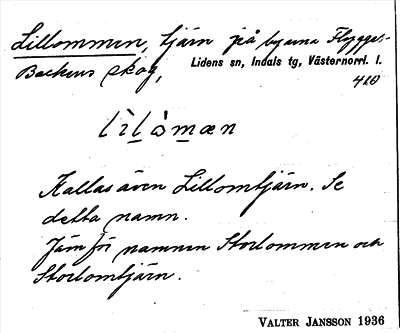 Lillommen, tjärn på byarna Flygge-
Backens skog,
Lidens sn, Indals tg, Västernorrl. l.
Kallas även Lillomtjärn. Se
detta namn.
Jämför namnen Storlommen och
Storlomtjärn.
VALTER JANSSON 1936